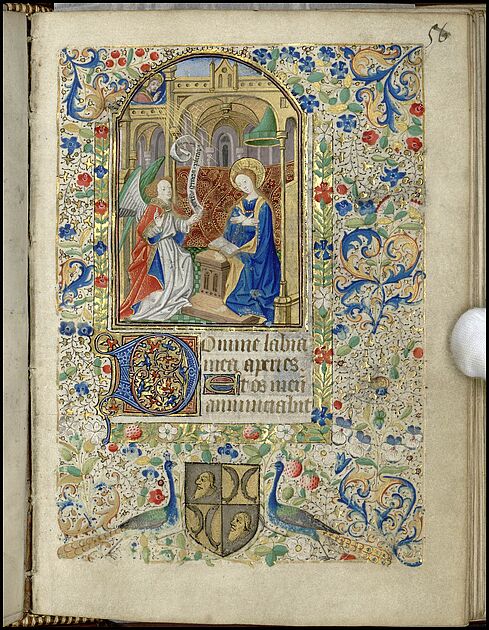 56
Domine labia
mea aperies.
Et os meū
annunciabit